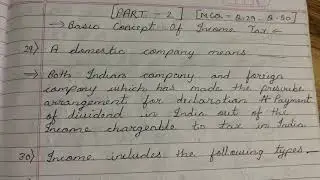 [PART - 2] [MCQ = Q.29 - Q.50]
→ Basic Concept Of Income Tax ←
29) A domestic company means
→ Both Indian company and foreign
company which has made the prescribe
arrangement for declaration & Payment
of dividend in India out of the
Income chargeable to tax in India.
30) Income includes the following types -